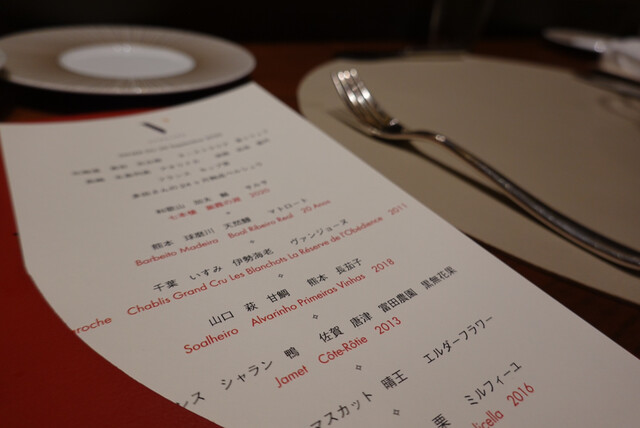 V
和歌山 加太 鯛 サルサ
七本槍 紫霞の湖 2020
熊本 球磨川 天然鰻 マトロート
Barbeito Madeira Boal Ribeiro Real 20 Anos
千葉 いすみ 伊勢海老 ヴァンジョーヌ
Laroche Chablis Grand Cru Les Blanchots La Réserve de l'Obédience 2011
山口 萩 甘鯛 熊本 長茄子
Soalheiro Alvarinho Primeiras Vinhas 2018
ンス シャラン 鴨 佐賀 唐津 富田農園 黒無花果
Jamet Côte-Rôtie 2013
マスカット 晴王 エルダーフラワー
栗 ミルフィーユ
icella 2016